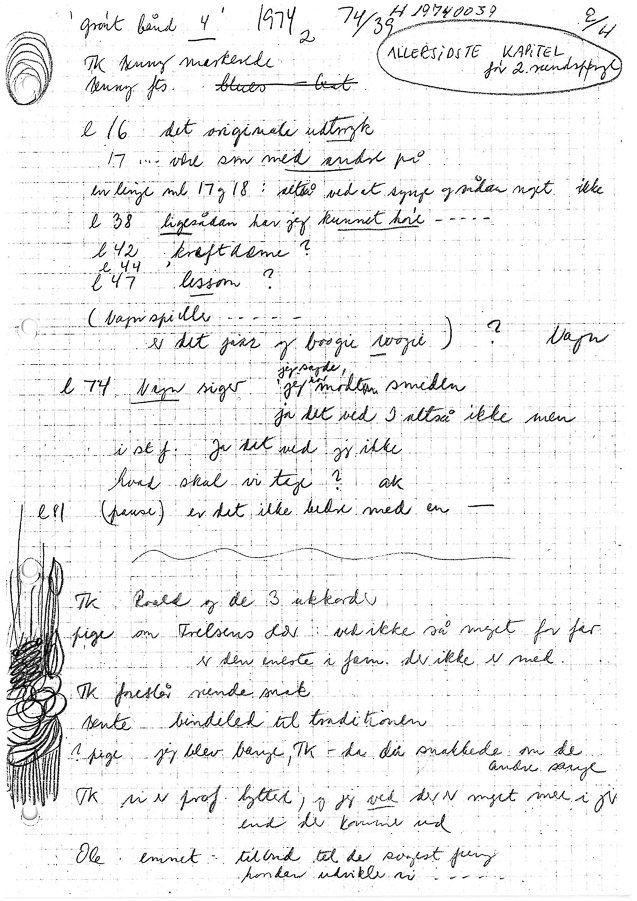 'grønt bånd 4' 1974 2 74/39 H 19740039 E/H
ALLERSIDSTE KAPITEL
før 2.
TK Henny markerede
Henny fts. blues - beat
l 16 det originale udtryk
17 ... være som med andre på
en linje ml 17 og 18 : altså ved at synge og sådan noget ikke
l 38 ligesådan har jeg kunnet høre -----
l 42 kraftdæme ?
l 44
l 47 lessom ?
(Vagn spiller ------
er det jazz og boogie woogie ) ? Vagn
jeg sagde,
l 74 Vagn siger jeg mødte smeden
ja det ved I altså ikke men
i st f. Ja det ved jeg ikke
hvad skal vi tage ? ak
l 81 (pause) er det ikke bedre med en —
TK Roald og de 3 akkorder
pige om Frelsens Hær : ved ikke så meget for far
er den eneste i fam. der ikke er med.
TK foreslår runde snak
bindeled til traditionen
? pige jeg blev bange, TK - da du snakkede om de
andre sange
TK vi er prof. lyttere, og jeg ved der er meget mere i jer
end der kommer ud
Ole emnet - til
hvordan udvikle vi -----